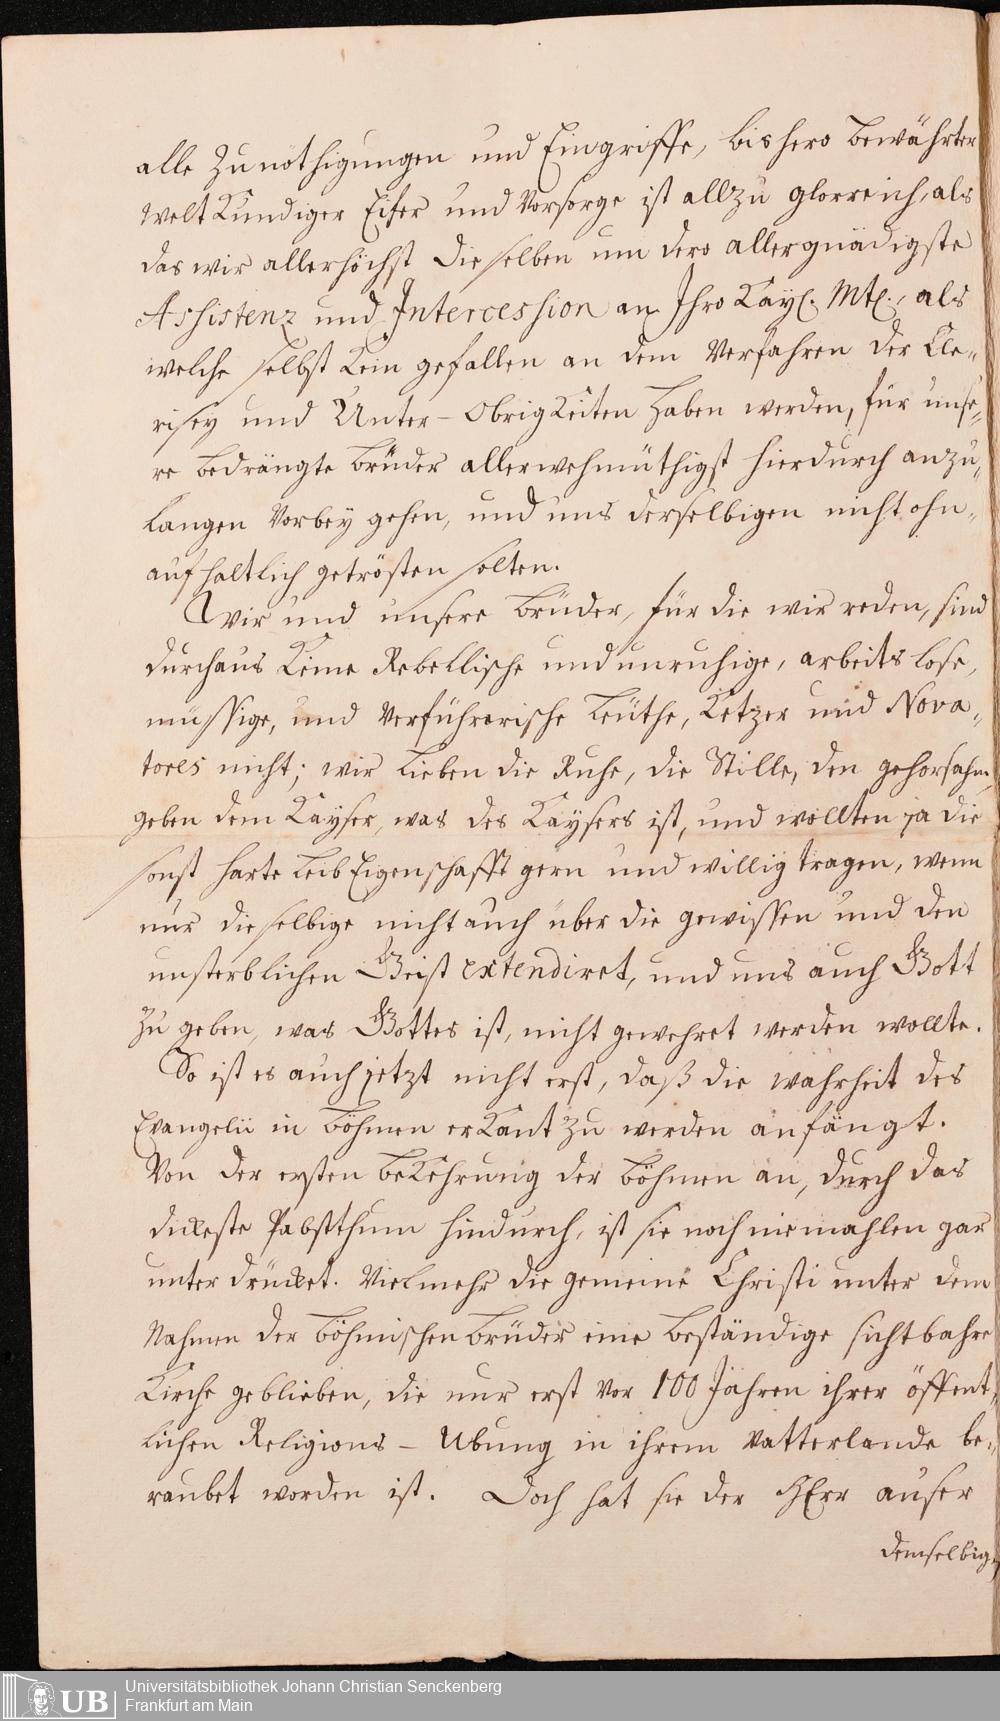 alle Zunöthigungen und Eingriffe, bishero bewährter
welt Kundiger Eifer und Vorsorge ist allzu glorreich, als
das wir allerhöchst Dieselben um dero allergnädigste
Assistenz und Intercession an Ihro Kayl. Mtl., als
welche selbst kein gefallen an dem Verfahren der Cle„
risey und Unter-Obrigkeiten haben werden, für unse„
re bedrängte Brüder allerwehmüthigst hierdurch anzu„
langen Vorbey gehen, und uns derselbigen nicht ohn„
aufhaltlich getrösten solten.
Wir und unsere Brüder, für die wir reden, sind
durchaus keine Rebellische und unruhige, arbeits lose,
müssige, und verführerische Leüthe, Ketzer und Nova„
tores nicht; wir lieben die Ruhe, die Stille, den gehorsahm,
geben dem Kayser, was des Kaysers ist, und wollten ja die
sonst harte Leib Eigenschafft gern und willig tragen, wenn
nur dieselbige nicht auch über die gewissen und den
unsterblichen Geist extendiret, und uns auch Gott
zu geben, was Gottes ist, nicht gewehret werden wollte.
So ist es auch jetzt nicht erst, daß die wahrheit des
Evangelii in Böhmen erkant zu werden anfängt.
Von der ersten bekehrung der Böhmen an, durch das
dickeste Pabstthum hindurch, ist sie noch niemahlen gar
unter drücket. Vielmehr die gemeine Christi unter dem
Nahmen der Böhmischen Brüder eine beständige sichtbahre
Kirche geblieben, die nur erst vor 100 Jahren ihrer öffent„
lichen Religions-Ubung in ihrem Vatterlande be„
raubet worden ist. Doch hat sie der HErr auser
demselbigen
UB
Universitätsbibliothek Johann Christian Senckenberg
Frankfurt am Main